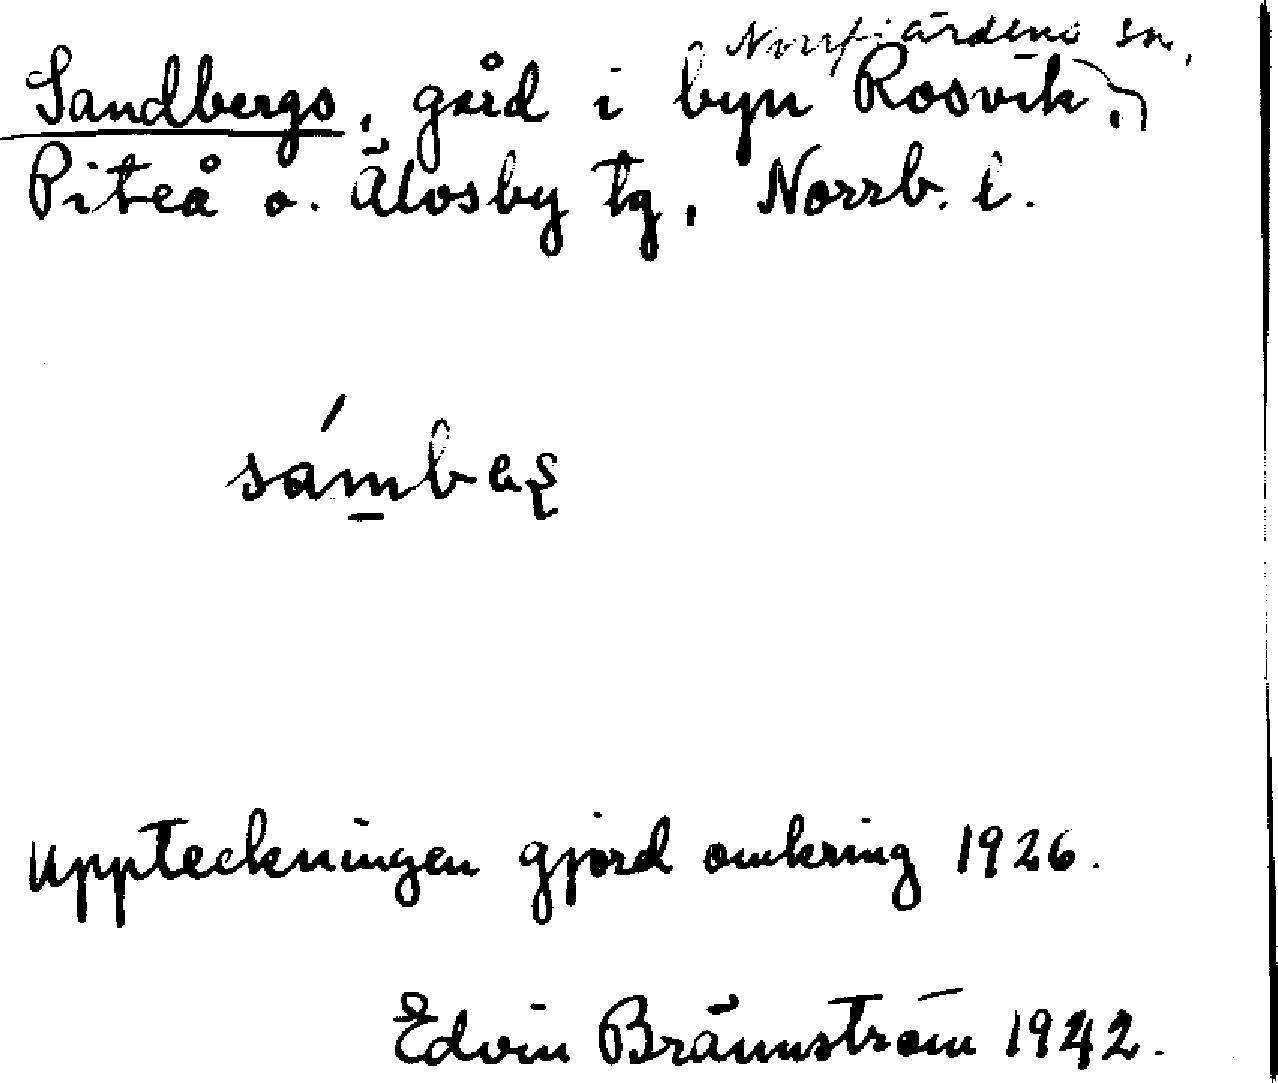 Norrfjärdens sn,
Sandbergs, gård i byn Rosvik,
Piteå o. Älvsby tg, Norrb. l.
sámbeʂ
Uppteckningen gjord omkring 1926.
Edvin Brännström 1942.